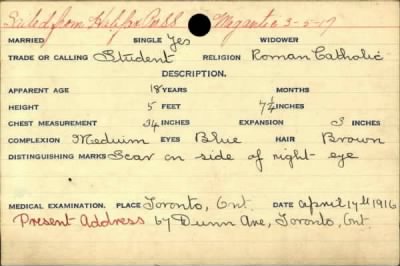 Sailed from Halifax Per SS Megantic 3-5-17
MARRIED SINGLE Yes WIDOWER
TRADE OR CALLING Student RELIGION Roman Catholic
DESCRIPTION.
APPARENT AGE 18 YEARS MONTHS
HEIGHT 5 FEET 7½ INCHES
CHEST MEASUREMENT 34 INCHES EXPANSION 3 INCHES
COMPLEXION Meduim EYES Blue HAIR Brown
DISTINGUISHING MARKS Scar on side of right eye
MEDICAL EXAMINATION. PLACE Toronto, Ont. DATE April 17th 1916
Present Address 67 Dunn Ave, Toronto, Ont.